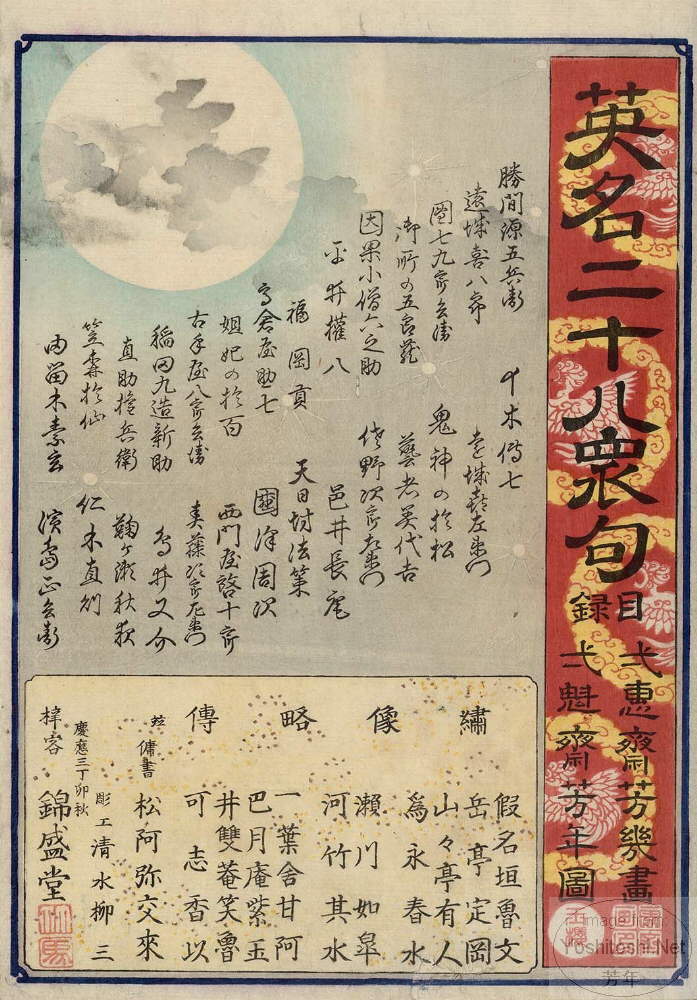 英名二十八衆句
目録
弌恵齋芳幾畫
弌魁齋芳年圖
勝間源五兵衛
十木傳七
遠城喜八郎
遠城左衛門
團七九郎兵衛
鬼神の於松
御所の五良蔵
藝者美代吉
因果小僧六之助
佐野次郎左衛門
平井權八
邑井長庵
福岡貢
天日坊法策
高倉屋助七
國澤周次
妲妃の於百
西門屋啓十郎
古手屋八郎兵衛
春藤次郎左衛門
稲田九造新助
鳥井又介
直助権兵衛
鞠ヶ瀬秋夜
笠森於仙
仁木直則
由留木素玄
濱島正兵衛
繍像略傳
假名垣魯文
岳亭定岡
山々亭有人
為永春水
瀬川如皐
河竹其水
一葉舍甘阿
巴月庵紫玉
井雙菴笑魯
可志香以
傭書
松阿弥交來
彫工清水柳三
慶應三丁卯秋
梓客
錦盛堂
Image from
Yoshitoshi.Net
芳年